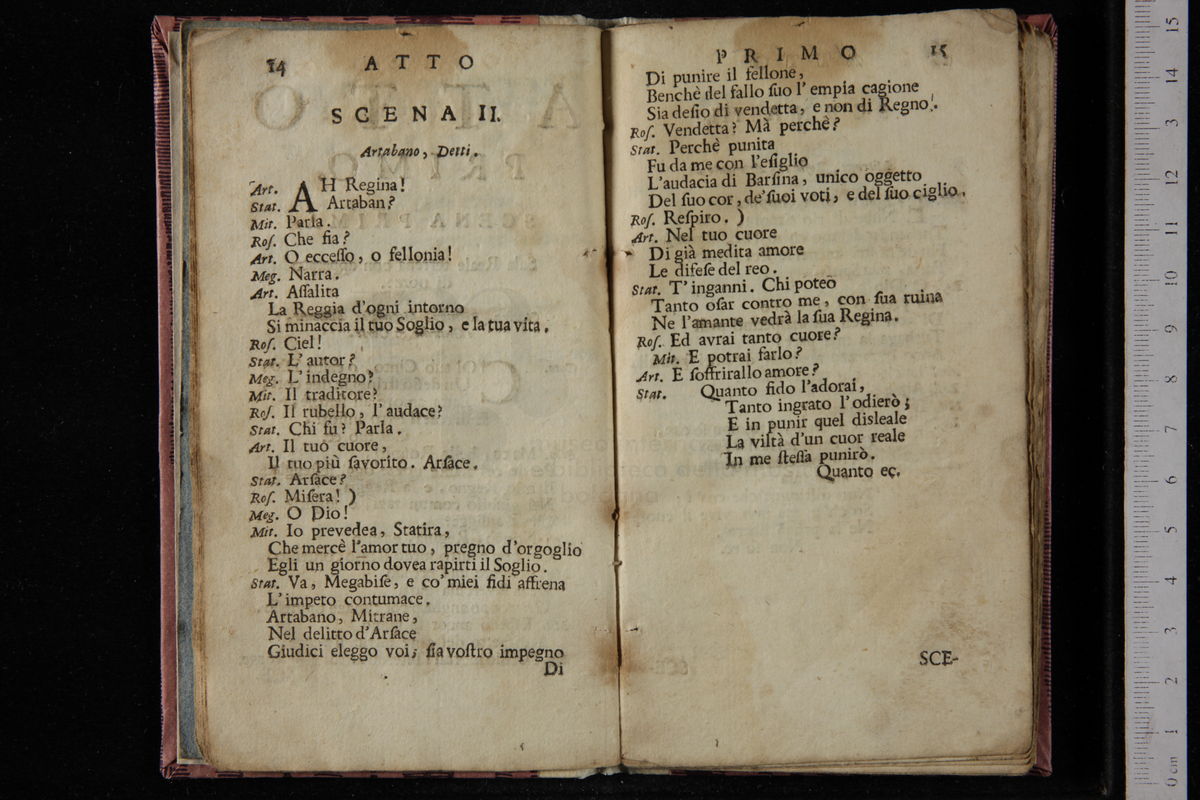 14 ATTO
SCENA II.
Artabano, Detti.
Art. AH Regina!
Stat. Artaban?
Mit. Parla.
Roſ. Che fia?
Art. O ecceſſo, o fellonia!
Meg. Narra.
Art. Aſſalita
La Reggia d'ogni intorno
Si minaccia il tuo Soglio, e la tua vita.
Roſ. Ciel!
Stat. L'autor?
Meg. L'indegno?
Mit. Il traditore?
Roſ. Il rubello, l'audace?
Stat. Chi fu? Parla.
Art. Il tuo cuore,
Il tuo più favorito. Arſace.
Stat. Arſace?
Roſ. Miſera! )
Meg. O Dio!
Mit. Io prevedea, Statira,
Che mercè l'amor tuo, pregno d'orgoglio
Egli un giorno dovea rapirti il Soglio.
Stat. Va, Megabiſe, e co' miei fidi affrena
L'impeto contumace.
Artabano, Mitrane,
Nel delitto d'Arſace
Giudici eleggo voi; ſia voſtro impegno
Di
PRIMO 15
Di punire il fellone,
Benchè del fallo ſuo l'empia cagione
Sia deſio di vendetta, e non di Regno.
Roſ. Vendetta? Mà perchè?
Stat. Perchè punita
Fu da me con l'eſiglio
L'audacia di Barſina, unico oggetto
Del ſuo cor, de' ſuoi voti, e del ſuo ciglio.
Roſ. Reſpiro. )
Art. Nel tuo cuore
Di già medita amore
Le difeſe del reo.
Stat. T'inganni. Chi poteo
Tanto oſar contro me, con ſua ruina
Ne l'amante vedrà la ſua Regina.
Roſ. Ed avrai tanto cuore?
Mit. E potrai farlo?
Art. E ſoffrirallo amore?
Stat. Quanto fido l'adorai,
Tanto ingrato l'odierò;
E in punir quel disleale
La viltà d'un cuor reale
In me ſteſſa punirò.
Quanto ec.
SCE-